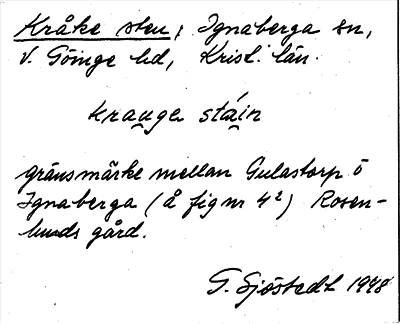 Kråke sten, Ignaberga sn,
V. Göinge hd, Krist. län.
krauge stáin
gränsmärke mellan Gulastorp o
Ignaberga (å fig nr 4²) Rosen-
lunds gård.
G. Sjöstedt 1948